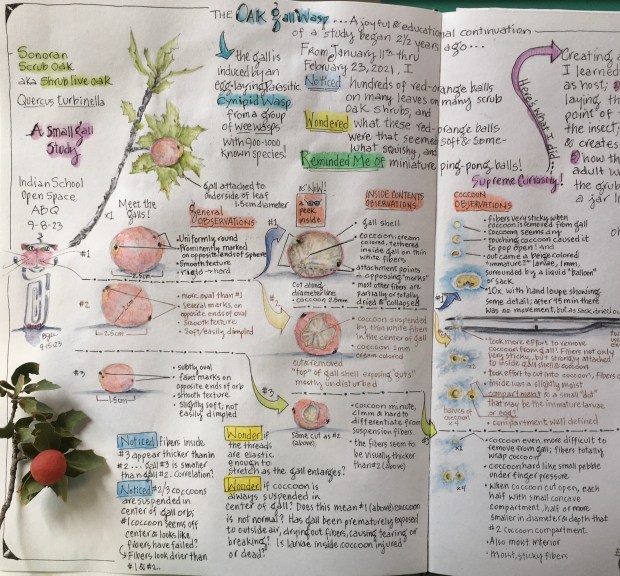 THE OAK gall Wasp ... A joyful & educational continuation
of a study began 2½ years ago...
Sonoran
Scrub Oak
aka Shrub live oak
Quercus turbinella
A Small gall
Study
Indian School
Open Space
ABQ
9-8-23
the gall is
induced by an
egg-laying parasitic
Cynipid Wasp
from a group
of wee wasps
with 900-1000
known species!
gall attached to
underside of leaf
1.5cm diameter
From January 11th thru
February 23, 2021, I
Noticed hundreds of red-orange balls
on many leaves on many scrub
oak shrubs, and
Wondered what these red-orange balls
were that seemed soft & some-
what squishy, and
Reminded Me of miniature ping-pong balls!
Creating a
I learned
as host;
laying th
point of
the insect;
& creates
how th
adult w
the grub
a jar l
Here's what I did...
Supreme Curiosity!
x1 Meet the
Galls!
#1
General
OBSERVATIONS
• Uniformly round
• Prominently marked
on opposite ends of sphere
• Smooth texture
• rigid → hard
#2
1.5cm
• more oval than #1
• Several marks, on
opposite ends of oval
• Smooth texture
• Soft/easily dimpled
#3
1.5cm
• subtly oval
• faint marks on
opposite ends of orb
• smooth texture
• slightly soft; not
easily dimpled
9-15-23
& Now!
a
peek
inside
#1
Cut along
diameter line
• cocoon 2.5mm
INSIDE CONTENTS
OBSERVATIONS
• gall shell
• cocoon: cream
colored, tethered
inside gall on thin
white fibers
• attachment points
= opposing "marks"
• most other fibers are
partially or totally
dried & collapsed
#2
• cocoon suspended
by thin white fibers
in the center of gall
• cocoon 2mm
• cream colored
cut & removed
"top" of gall shell exposing "guts"
mostly undisturbed
#3
Same cut as #2
(above)
• cocoon minute,
<1mm & hard to
differentiate from
suspension fibers
• the fibers seem to
be visually thicker
than #2 (above)
COCOON
OBSERVATIONS
• fibers very sticky when
cocoon is removed from gall
• cocoon seems dry
• touching cocoon caused it
to pop open! and
• out came a beige colored
"immature?" larvae, 1mm,
surrounded by a liquid "balloon"
or sack.
#1
• 10x with hand loupe showing
some detail; after 45 min there
was no movement, but as sack dried ou
#2
• took more effort to remove
cocoon from gall! Fibers not only
very sticky, but strongly attached
to inside gall shell & cocoon
• took effort to cut into cocoon, fibers
• Inside was a slightly moist
compartment & a small "dot"
that may be the immature larvae
or egg?
• compartment well defined
halves of
cocoon
x4
#3
x4
• cocoon even more difficult to
remove from gall; fibers totally
wrap cocoon
• cocoon hard like small pebble
under finger pressure
• When cocoon cut open, each
half with small concave
compartment, half or more
smaller in diameter & depth than
#2 cocoon compartment
• Also moist interior
• Moist, sticky fibers
Noticed fibers inside
#3 appear thicker than in
#2 ... gall #3 is smaller
than gall #2. Correlation?
Noticed #2/3 cocoons
are suspended in
center of gall orb;
#1 cocoon seems off
center & looks like
fibers have failed?
Fibers look drier than
#1 & #2.
Wonder if
the threads
are elastic
enough to
stretch as the gall enlarges?
Wonder if cocoon is
always suspended in
center of gall? Does this mean #1 (above) cocoon
is not normal? Has gall been prematurely exposed
to outside air, drying out fibers, causing tearing or
breaking? Is larvae inside cocoon injured
or dead?